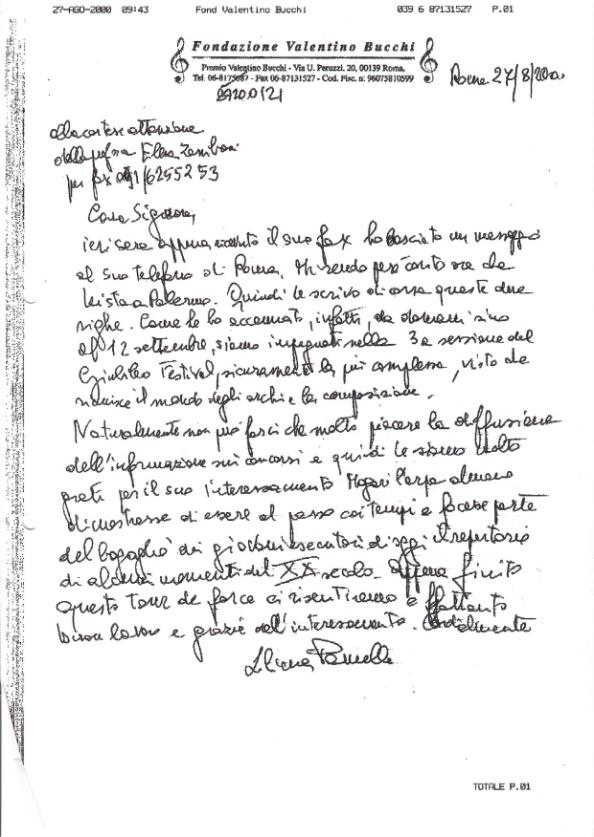 27-AGO-2000 09:43 Fond Valentino Bucchi 039 6 87131527 P.01
Fondazione Valentino Bucchi
Premio Valentino Bucchi - Via U. Peruzzi, 20, 00139 Roma.
Tel. 06-8175687 - Fax 06-87131527 - Cod. Fisc. n. 96075810599
Roma 27/8/2000
alla cortese attenzione
della prof.ssa Elena Zaniboni
per fax 091/6255253
Cara Signora,
ieri sera appena ricevuto il suo fax ho lasciato un messaggio
al suo telefono di Roma. Mi rendo però conto ora che
lei sta a Palermo. Quindi le scrivo di corsa queste due
righe. Come le ho accennato, infatti, da domani sino
al 12 settembre, siamo impegnati nella 3a sessione del
Giubileo Festival, sicuramente la più complessa, visto che
riunisce il mondo degli archi e la composizione.
Naturalmente non può farci che molto piacere la diffusione
dell'informazione sui concorsi e quindi le siamo molto
grati per il suo interessamento Magari l'arpa almeno
dimostrasse di essere al passo coi tempi e facesse parte
del bagaglio dei giovani esecutori di oggi il repertorio
di alcuni momenti del XX secolo. Appena finito
questo tour de force ci risentiremo e frattanto
buon lavoro e grazie dell'interessamento. Cordialmente
Liliana Pannella
TOTALE P.01